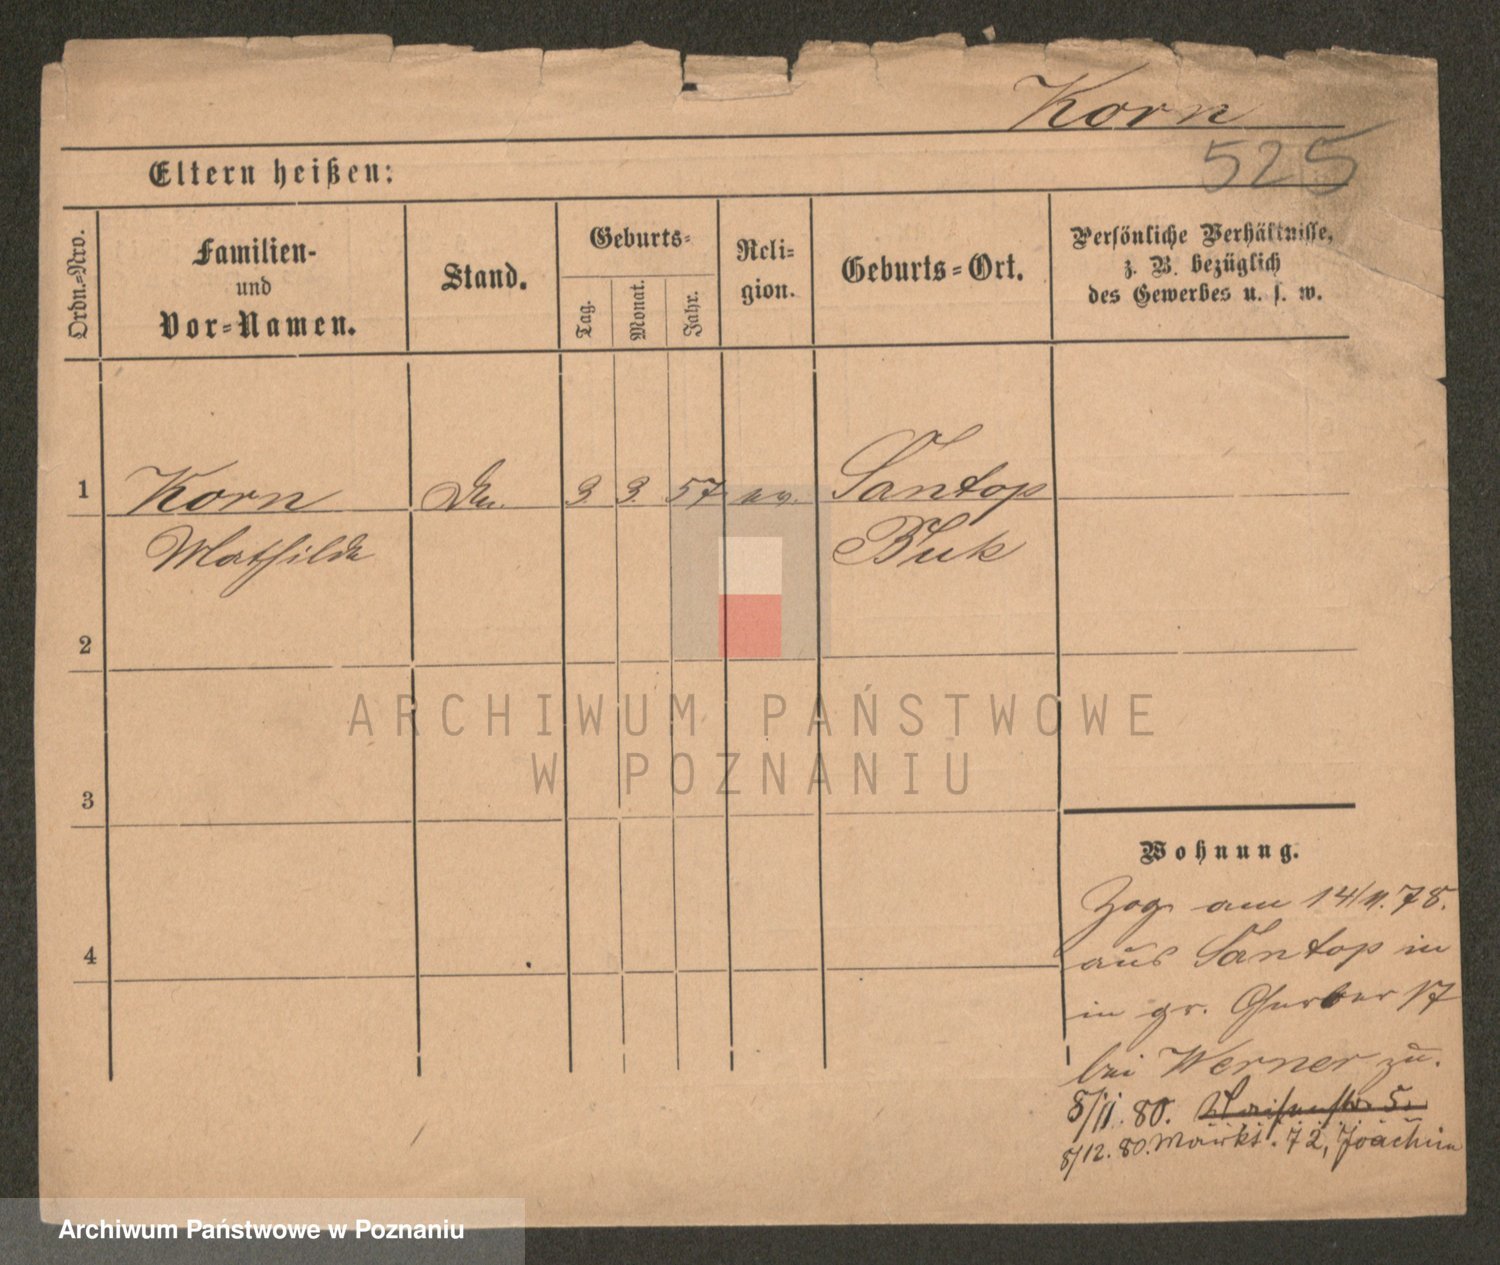 Korn
525
Eltern heißen:
Ordn.-Nro.
Familien-
und
Vor-Namen.
Stand.
Geburts-
Tag.
Monat.
Jahr.
Reli-
gion.
Geburts-Ort.
Persönliche Verhältnisse,
z. B. bezüglich
des Gewerbes u. s. w.
1 Korn 3 3. 57 ev. Santop
Mathilde Buk
2
ARCHIWUM PAŃSTWOWE
W POZNANIU
3
Wohnung.
Zog am 14/11.78.
4
aus Santop in
in gr. Gerber 17
bei Werner zu.
8/11.80.
8/12.80. Markt. 72, Joachim
Archiwum Państwowe w Poznaniu